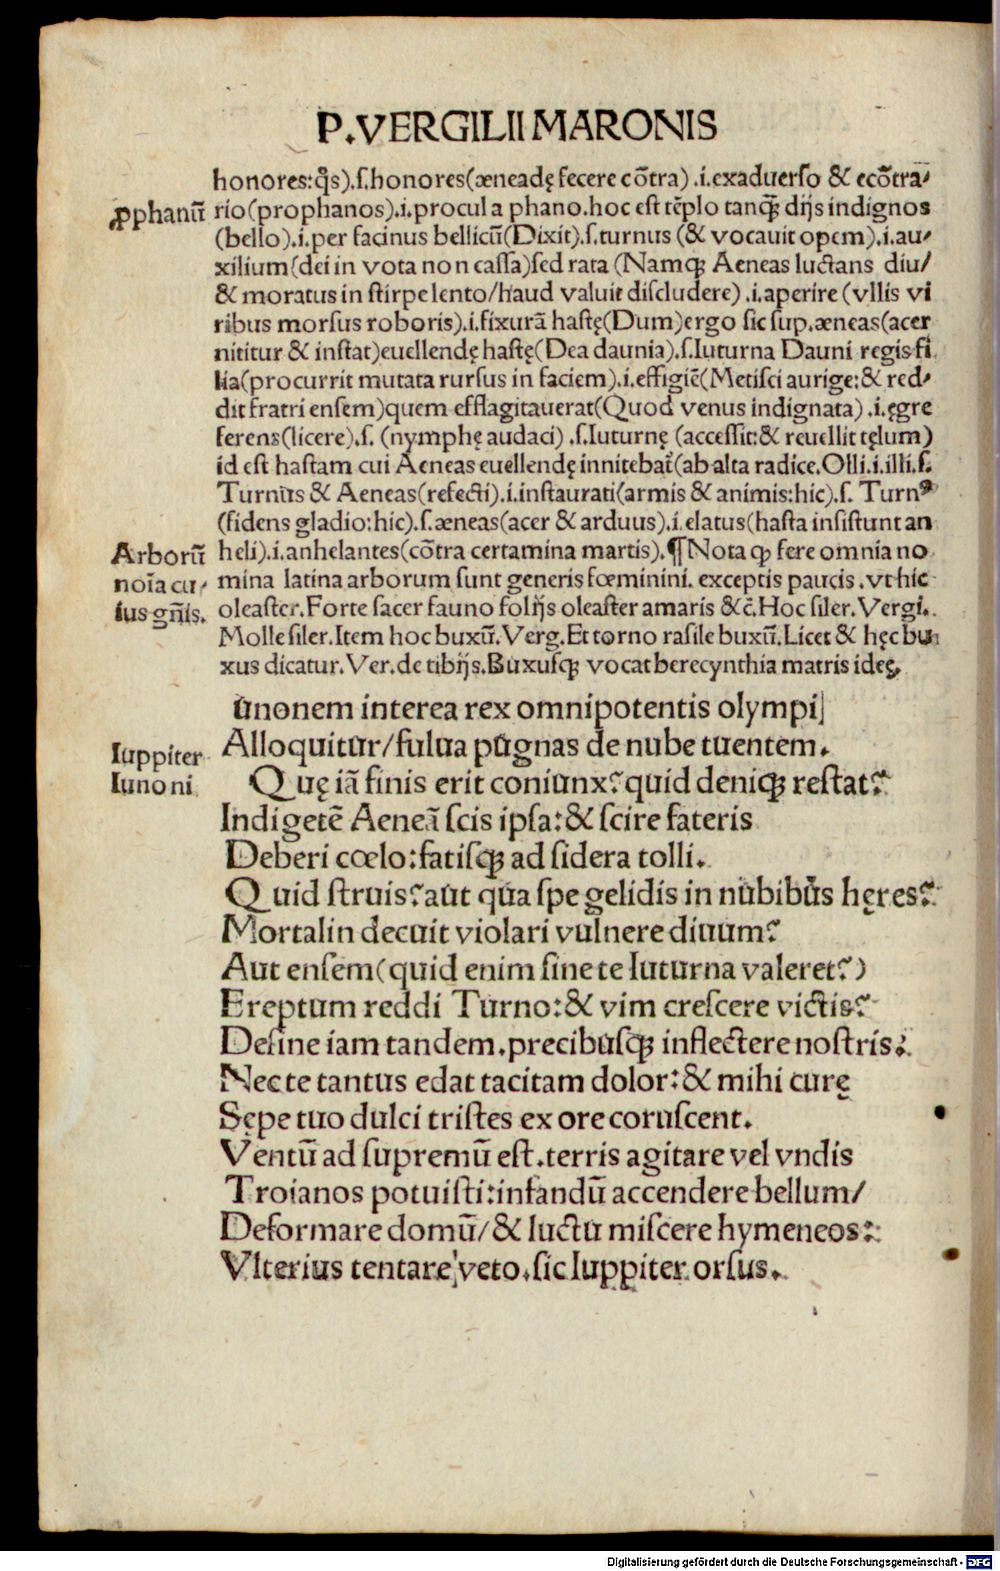 P.VERGILII MARONIS
honores:q̃s).ſ.honores(æneadę fecere cõtra).i.exaduerſo & ecõtra-
ꝓphanũ
rio(prophanos).i.procul a phano.hoc eſt tẽplo tanqꝫ̃ dijs indignos
(bello).i.per facinus bellicũ(Dixit).ſ.turnus (& vocauit opem).i.au-
xilium(dei in vota non caſſa)ſed rata (Namqꝫ Aeneas luctans diu/
& moratus in ſtirpe lento/haud valuit diſcludere).i.aperire (vllis vi
ribus morſus roboris).i.fixurã haſtę(Dum)ergo ſic ſup.æneas(acer
nititur & inſtat)euellendę haſtę(Dea daunia).ſ.Iuturna Dauni regis fi
lia(procurrit mutata rurſus in faciem).i.effigiẽ(Metiſci aurige:& red-
dit fratri enſem)quem efflagitauerat(Quod venus indignata).i.ęgre
ferens(licere).ſ. (nymphę audaci).ſ.Iuturnę (acceſſit:& reuellit tęlum)
id eſt haſtam cui Aeneas euellendę innitebat̃(ab alta radice.Olli.i.illi.ſ.
Turnus & Aeneas(refecti).i.inſtaurati(armis & animis:hic).ſ. Turnꝰ
(fidens gladio:hic).ſ.æneas(acer & arduus).i.elatus(haſta inſiſtunt an
Arborũ
heli).i.anhelantes(cõtra certamina martis).¶Nota ꝙ fere omnia no
noĩa cu-
mina latina arborum ſunt generis fœminini. exceptis paucis.vt hic
ius gñis.
oleaſter.Forte ſacer fauno folijs oleaſter amaris &c̃.Hoc ſiler.Vergi.
Molle ſiler.Item hoc buxũ.Verg.Et torno raſile buxũ.Licet & hęc bu
xus dicatur.Ver.de tibijs.Buxuſqꝫ vocat berecynthia matris ideę.
unonem interea rex omnipotentis olympi
Alloquitur/fulua pugnas de nube tuentem.
Iuppiter
Iunoni
Quę iã finis erit coniunx?quid deniqꝫ reſtat?
Indigetẽ Aeneã ſcis ipſa:& ſcire fateris
Deberi cœlo:fatiſqꝫ ad ſidera tolli.
Quid ſtruis?aut qua ſpe gelidis in nubibus hęres?
Mortalin decuit violari vulnere diuum?
Aut enſem(quid enim ſine te Iuturna valeret?)
Ereptum reddi Turno:& vim creſcere victis?
Deſine iam tandem.precibuſqꝫ inflectere noſtris.
Nec te tantus edat tacitam dolor:& mihi curę
Sępe tuo dulci triſtes ex ore coruſcent.
Ventũ ad ſupremũ eſt.terris agitare vel vndis
Troianos potuiſti:infandũ accendere bellum/
Deformare domũ/& luctu miſcere hymeneos:
Vlterius tentare veto.ſic Iuppiter orſus.
Digitalisierung gefördert durch die Deutsche Forschungsgemeinschaft - DFG